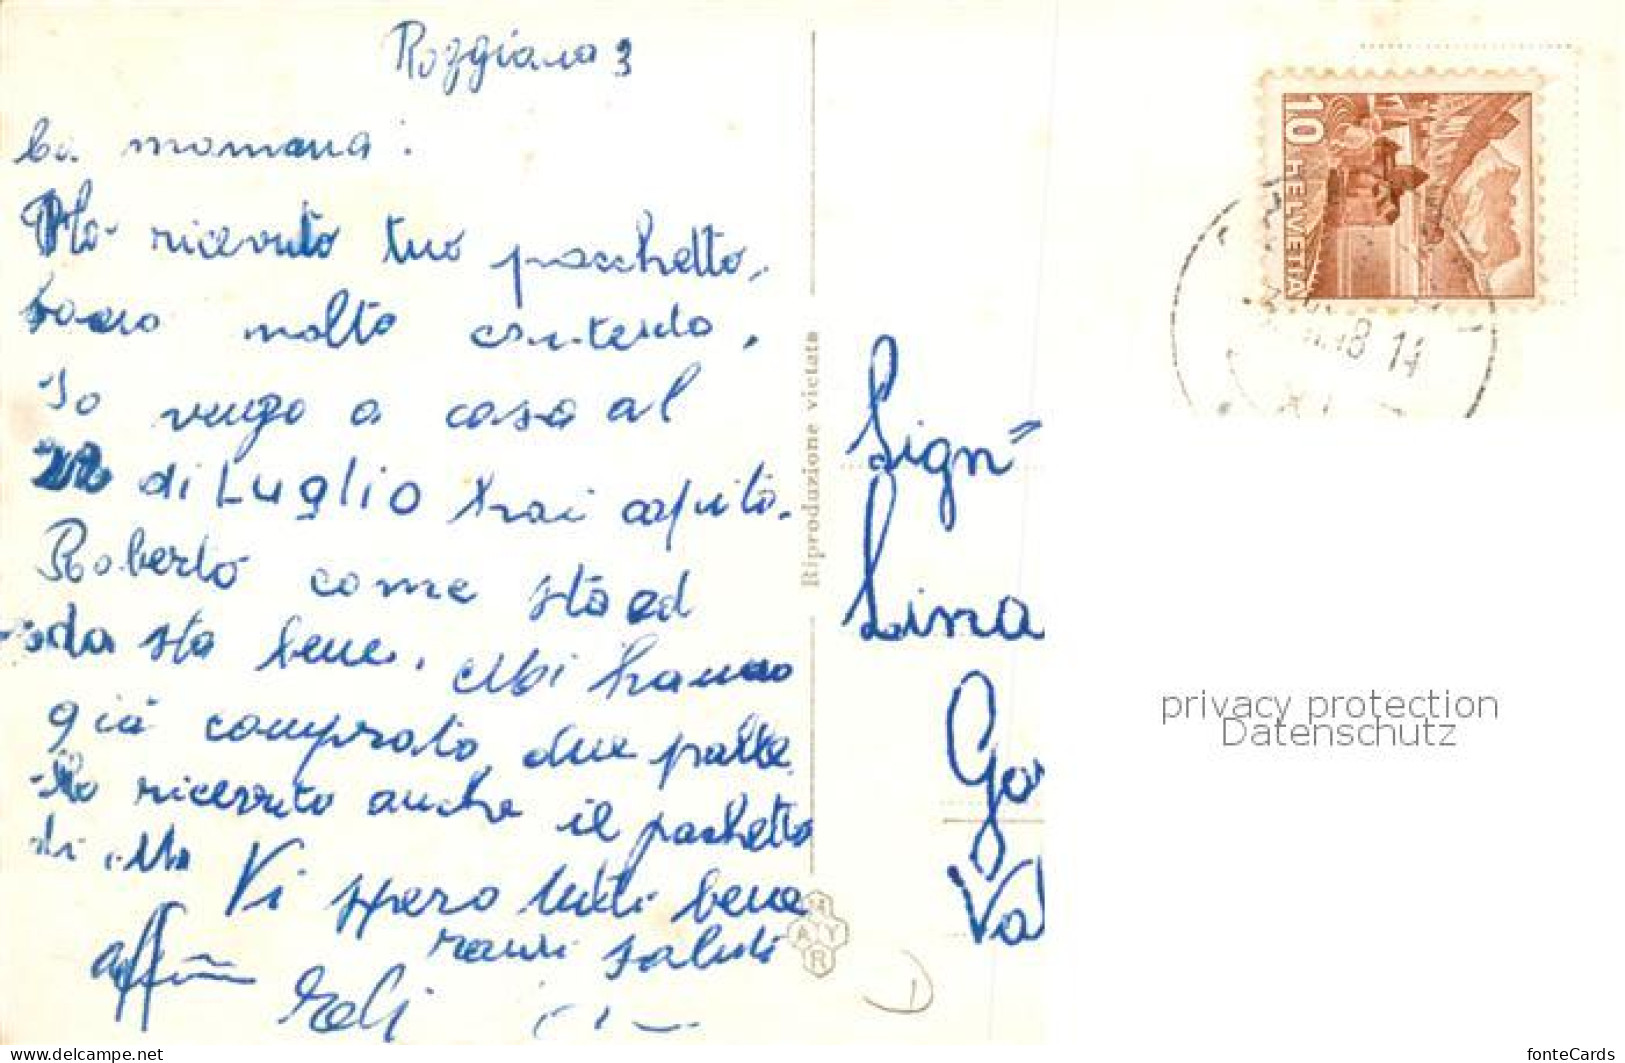 Roggiana 3
Ca. mamma:
Ho ricevuto tuo pacchetto,
sono molto contento.
Io vengo a casa al
22 di Luglio hai capito.
Roberto come sta ed
sta bene. Mi hanno
già comprato due palle
Ho ricevuto anche il pachetto
di
Vi spero tutti bene
saluti
aff.
Riproduzione vietata
MAYR
Sign"
Lina
Ga
Va
10
HELVETIA
48 14
privacy protection
Datenschutz
D
www.delcampe.net
fonteCards